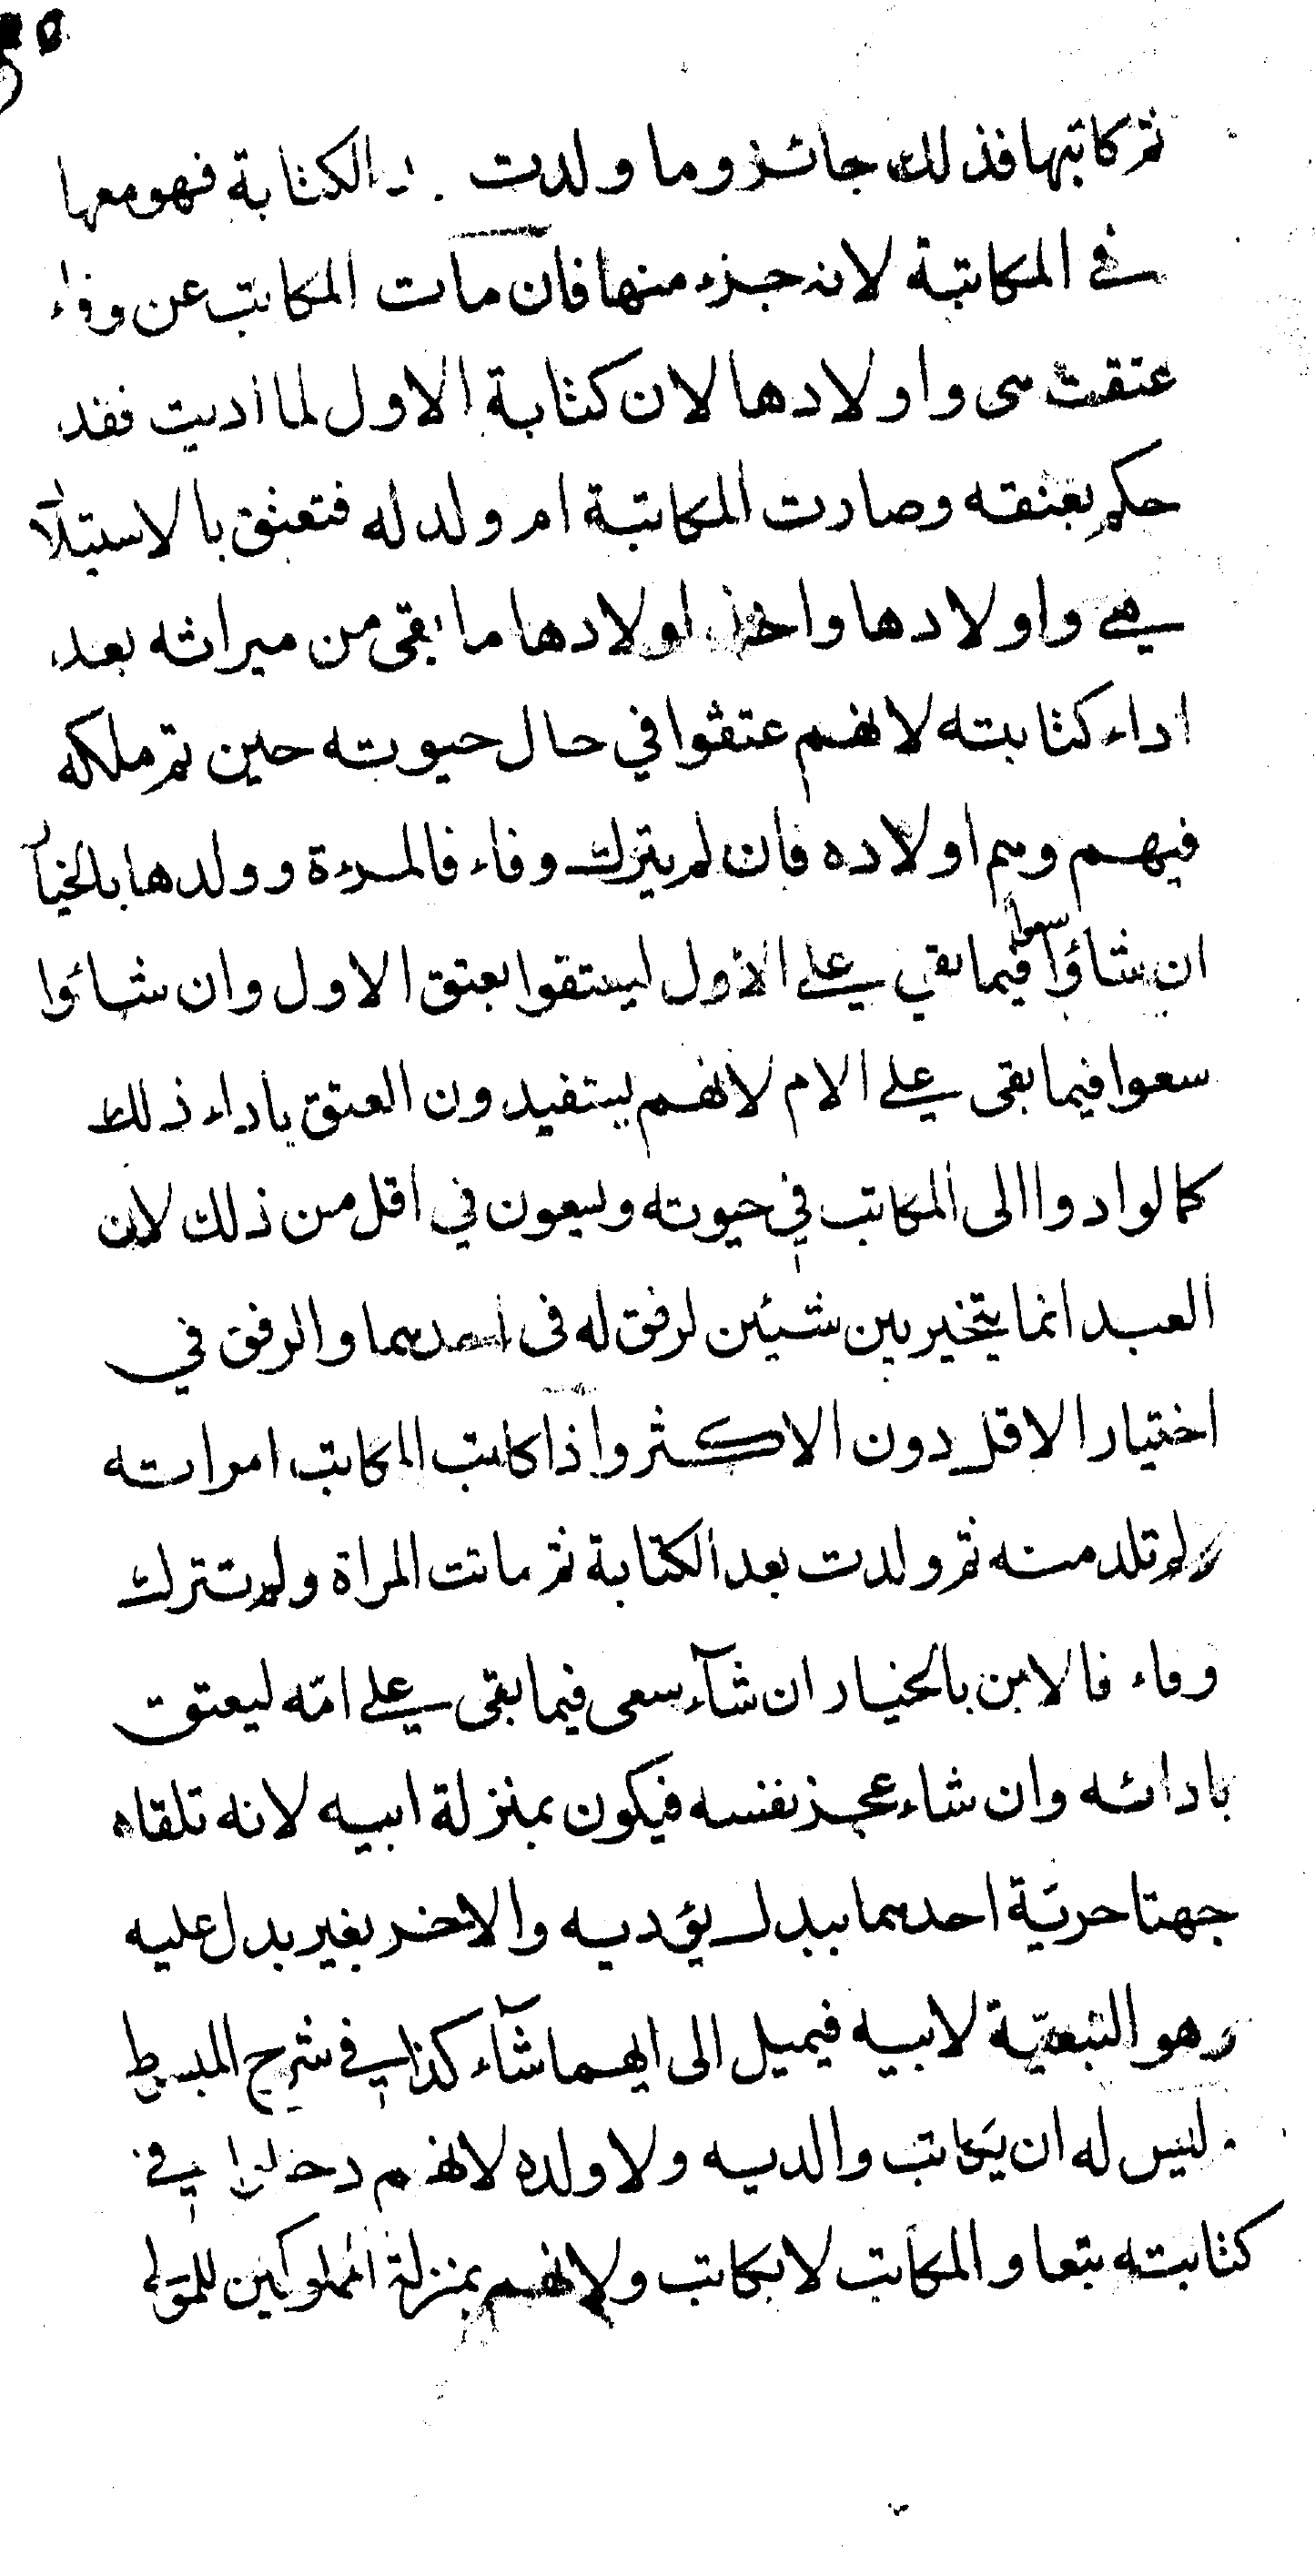 ثم كاتبها فذلك جائز وما ولدت الكتابة فهو معها
في المكاتبة لانه جزء منها فان مات المكاتب عن وفاء
عتقت هى واولادها لان كتابة الاول لما اديت فقد
حكم بعتقه وصارت المكاتبة ام ولد له فتعتق بالاستيلا
هي واولادها واخذ اولادها ما بقى من ميراثه بعد
اداء كتابته لانهم عتقوا في حال حيوته حين تم ملكه
فيهم وهم اولاده فان لم يترك وفاء فالمرءة وولدها بالخيا
ان شاؤا سعوا فيما بقي على الاول ليعتقوا بعتق الاول وان شاؤا
سعوا فيما بقى على الام لانهم يستفيدون العتق باداء ذلك
كما لو ادوا الى المكاتب في حيوته ويسعون في اقل من ذلك لان
العبد انما يتخير بين شيئين لرفق له فى احدهما والرفق في
اختيار الاقل دون الاكثر واذا كاتب المكاتب امراته
ولم تلد منه ثم ولدت بعد الكتابة ثم ماتت المراة ولم تترك
وفاء فالابن بالخيار ان شآء سعى فيما بقى على امّه ليعتق
بادائه وان شاء عجز نفسه فيكون بمنزلة ابيه لانه تلقاه
جهتا حريّة احدهما ببدل يؤديه والاخر بغير بدل عليه
وهو التبعيّة لابيه فيميل الى ايهما شآء كذا في شرح المبسوط
وليس له ان يكاتب والديه ولا ولده لانهم دخلوا في
كتابته تبعا والمكاتب لا يكاتب ولانهم بمنزلة المملوكين للمولى